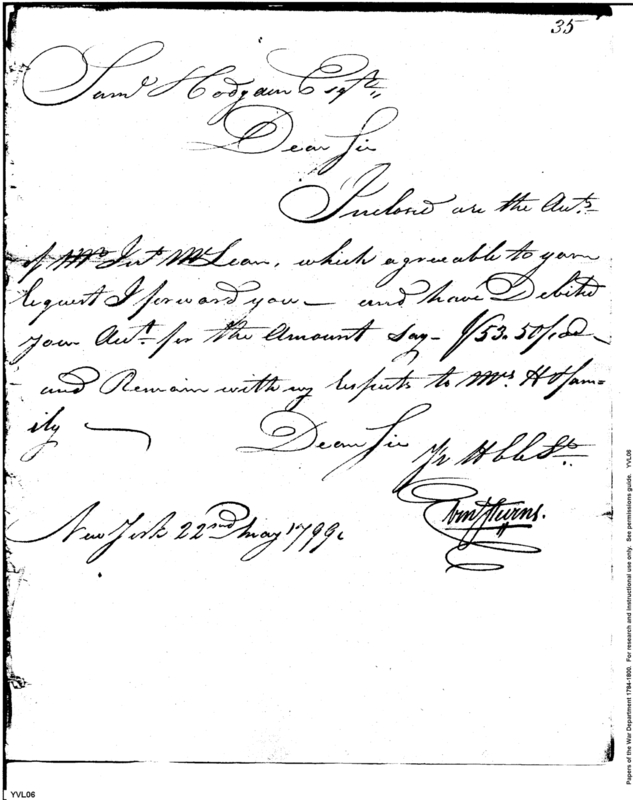 35
Saml Hodgson Esqr
Dear Sir
Inclosed are the Acts
of Mr Jno McLean, which agreeable to your
request I forward you — and have Debited
your Act for the Amount Say — $53.50/100
and Remain with my Respects to Mrs H & fam-
ily — Dear Sir
Yr Hble St
Ebenr Stevens.
New York 22nd May 1799.
Papers of the War Department 1784-1800. For research and instructional use only. See permissions guide. YVL06
YVL06